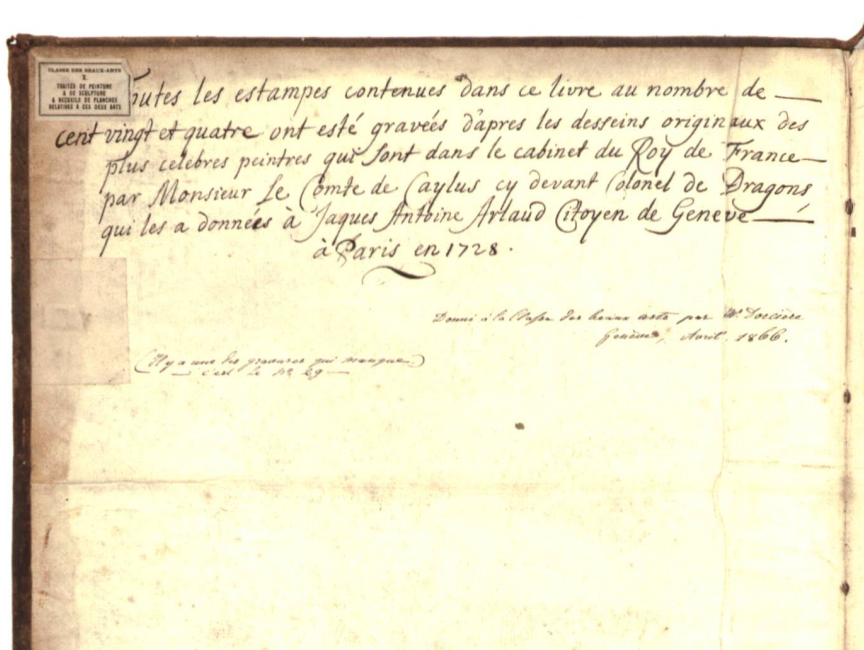 CLASSE DES BEAUX-ARTS
X.
TRAITÉS DE PEINTURE
& DE SCULPTURE
& RECUEILS DE PLANCHES
RELATIVES A CES DEUX ARTS
Toutes les estampes contenues dans ce livre au nombre de
cent vingt et quatre ont esté gravées d'apres les desseins originaux des
plus celebres peintres qui sont dans le cabinet du Roy de France
par Monsieur Le Comte de Caylus cy devant Colonel de Dragons,
qui les a données à Jaques Antoine Arlaud Citoyen de Geneve
à Paris en 1728.
Donné à la Classe des beaux arts par Mr. Dorcière
Genève, Avril. 1866.
(Il y a une des gravures qui manque)
c'est le No. 69